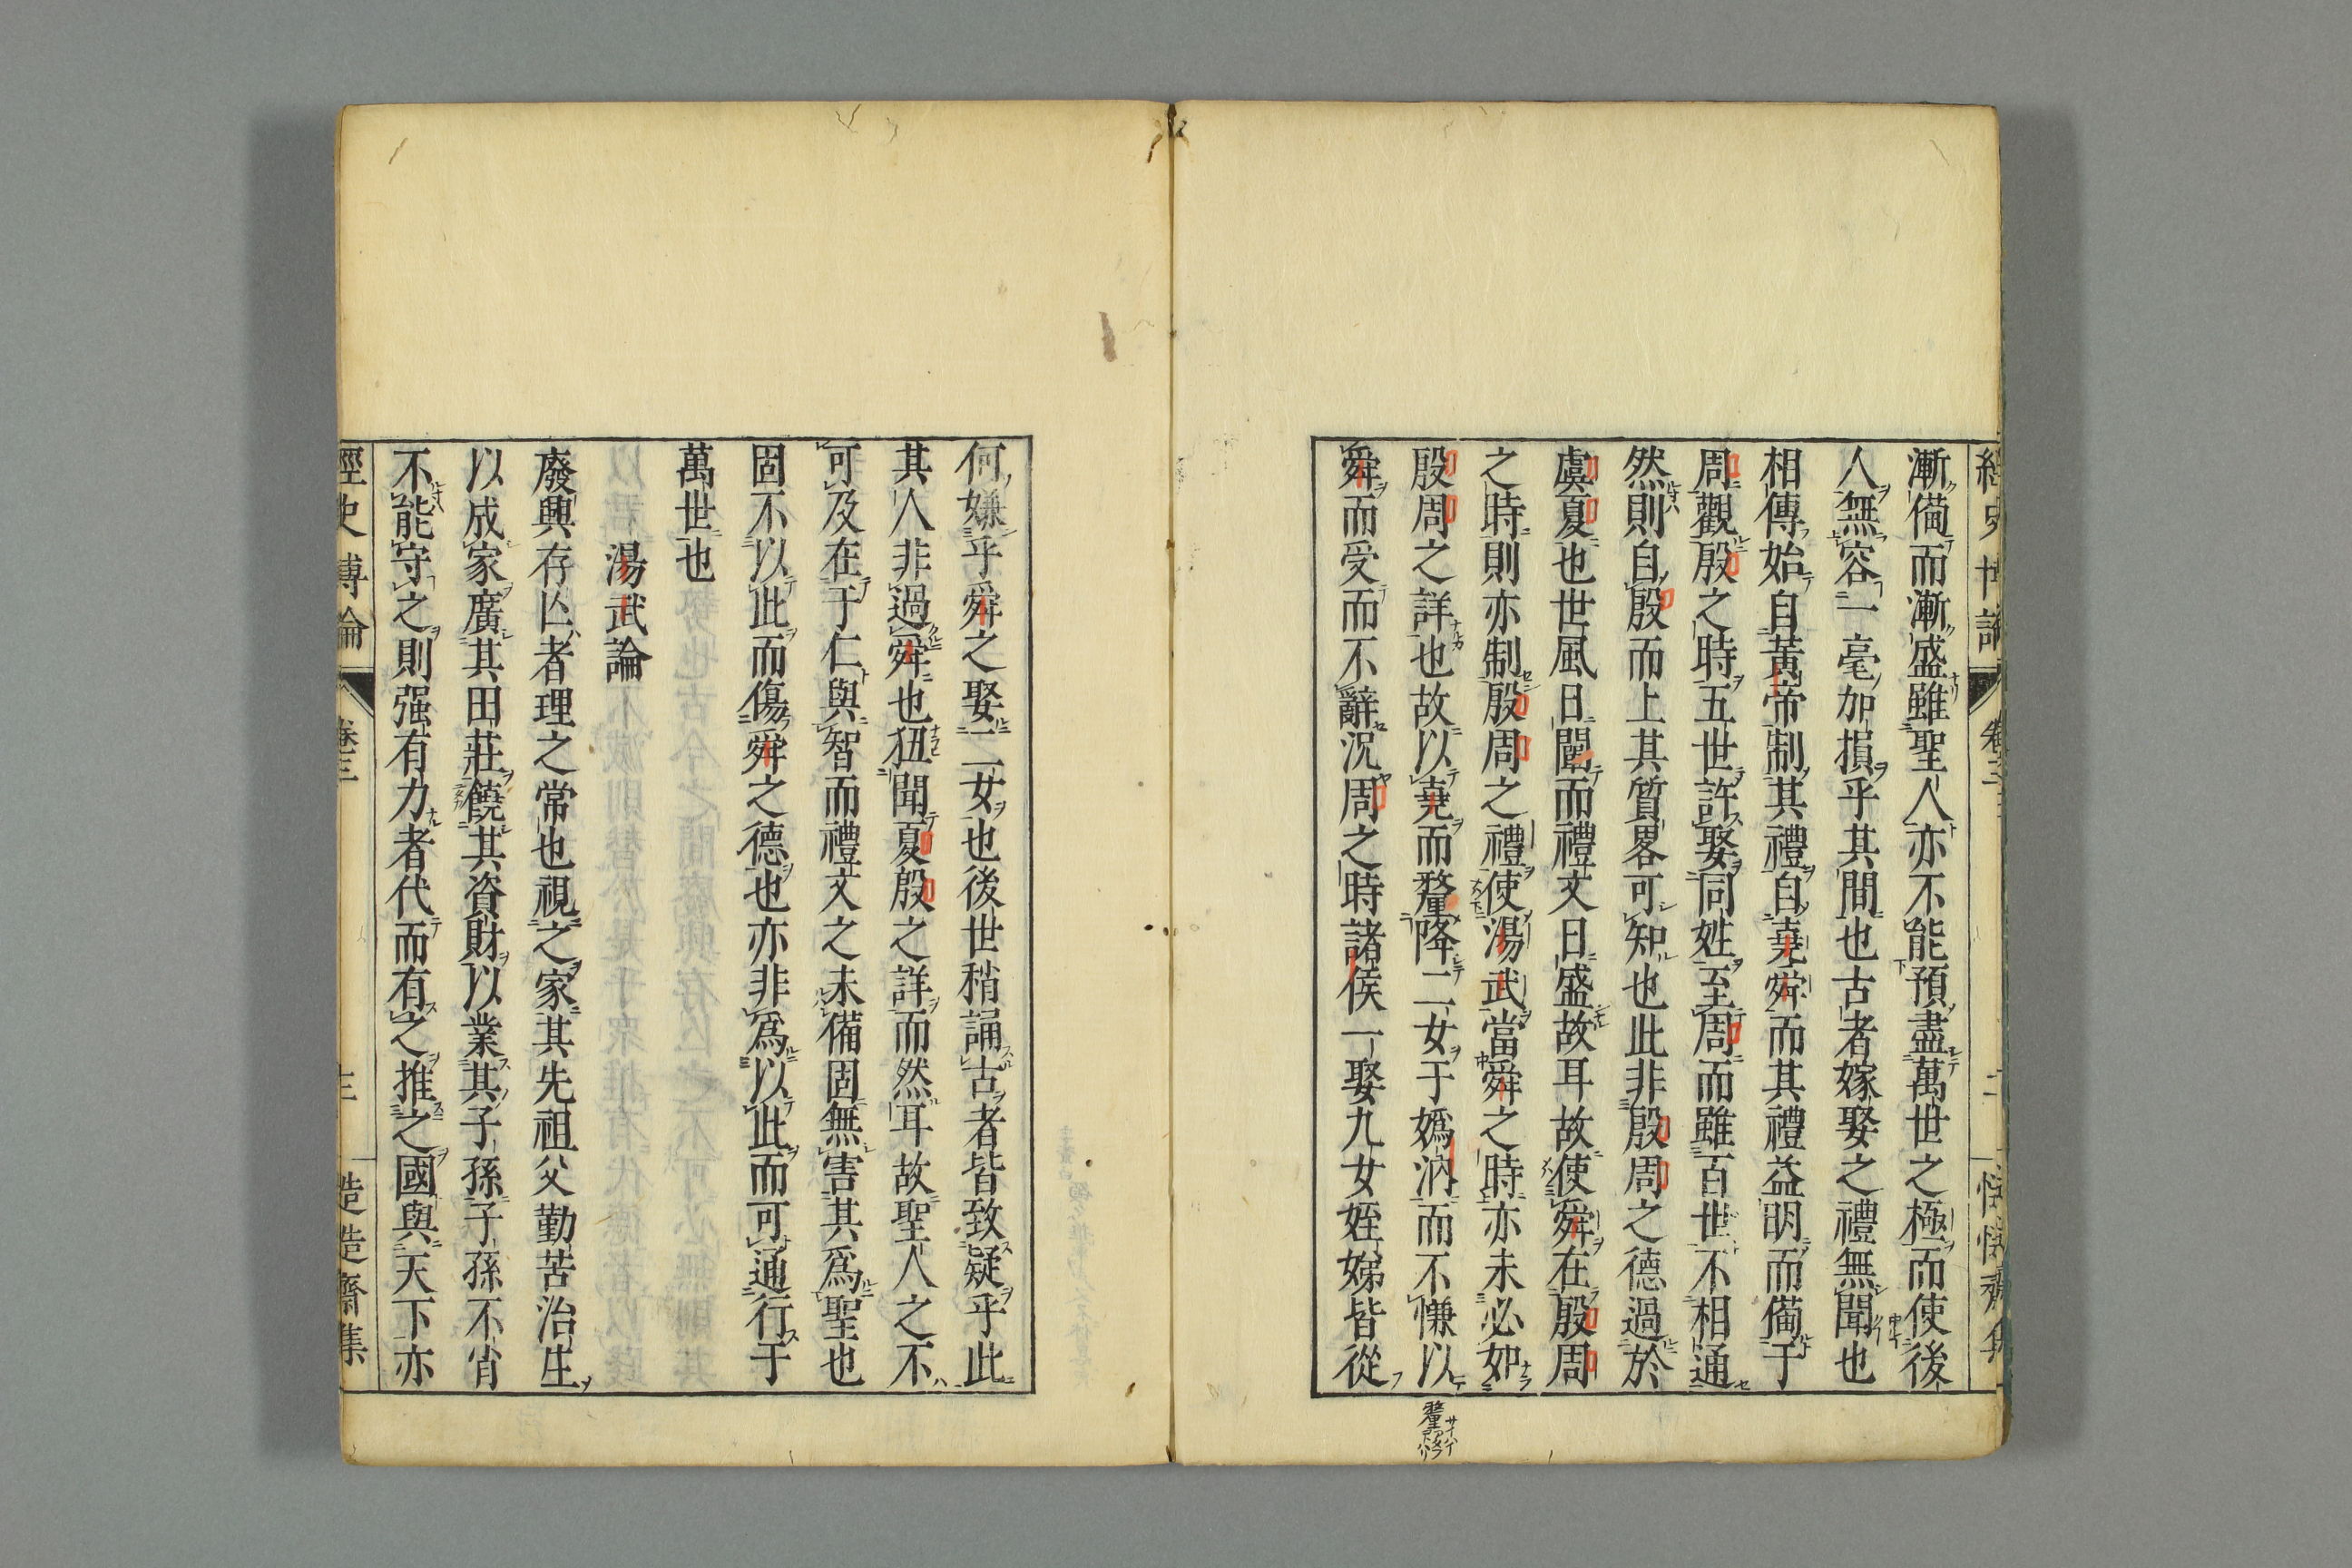 漸備而漸盛雖聖人亦不能預盡萬世之極而使後
人無容一毫加損乎其間也古者嫁娶之禮無聞也
相傳始自黃帝制其禮自堯舜而其禮益明而備于
周觀殷之時五世許娶同姓至周而雖百世不相通
然則自殷而上其質畧可知也此非殷周之德過於
虞夏也世風日闢而禮文日盛故耳故使舜在殷周
之時則亦制殷周之禮使湯武當舜之時亦未必如
殷周之詳也故以堯而釐降二女于嬀汭而不慊以
舜而受而不辭況周之時諸侯一娶九女姪娣皆從
何嫌乎舜之娶二女也後世稍誦古者皆致疑乎此
其人非過舜也狃聞夏殷之詳而然耳故聖人之不
可及在于仁與智而禮文之未備固無害其爲聖也
固不以此而傷舜之德也亦非爲以此而可通行于
萬世也
湯武論
廢興存亾者理之常也視之家其先祖父勤苦治生
以成家廣其田莊饒其資財以業其子孫子孫不肖
不能守之則强有力者代而有之推之國與天下亦
經史博論 卷三 三 造造齋集